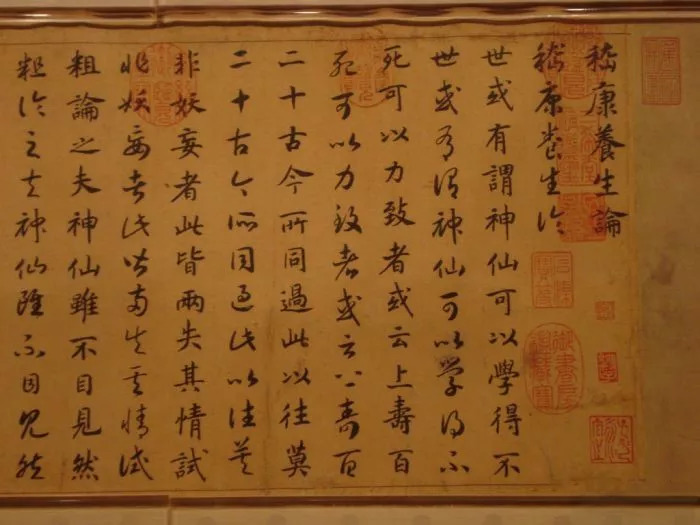 嵇康養生論
嵇康養生論
世或有謂神仙可以學得不
世或有謂神仙可以學得不
死可以力致者或云上壽百
死可以力致者或云上壽百
二十古今所同過此以往莫
二十古今所同過此以往莫
非妖妄者此皆兩失其情試
非妖妄者此皆兩失其情試
粗論之夫神仙雖不目見然
粗論之夫神仙雖不目見然